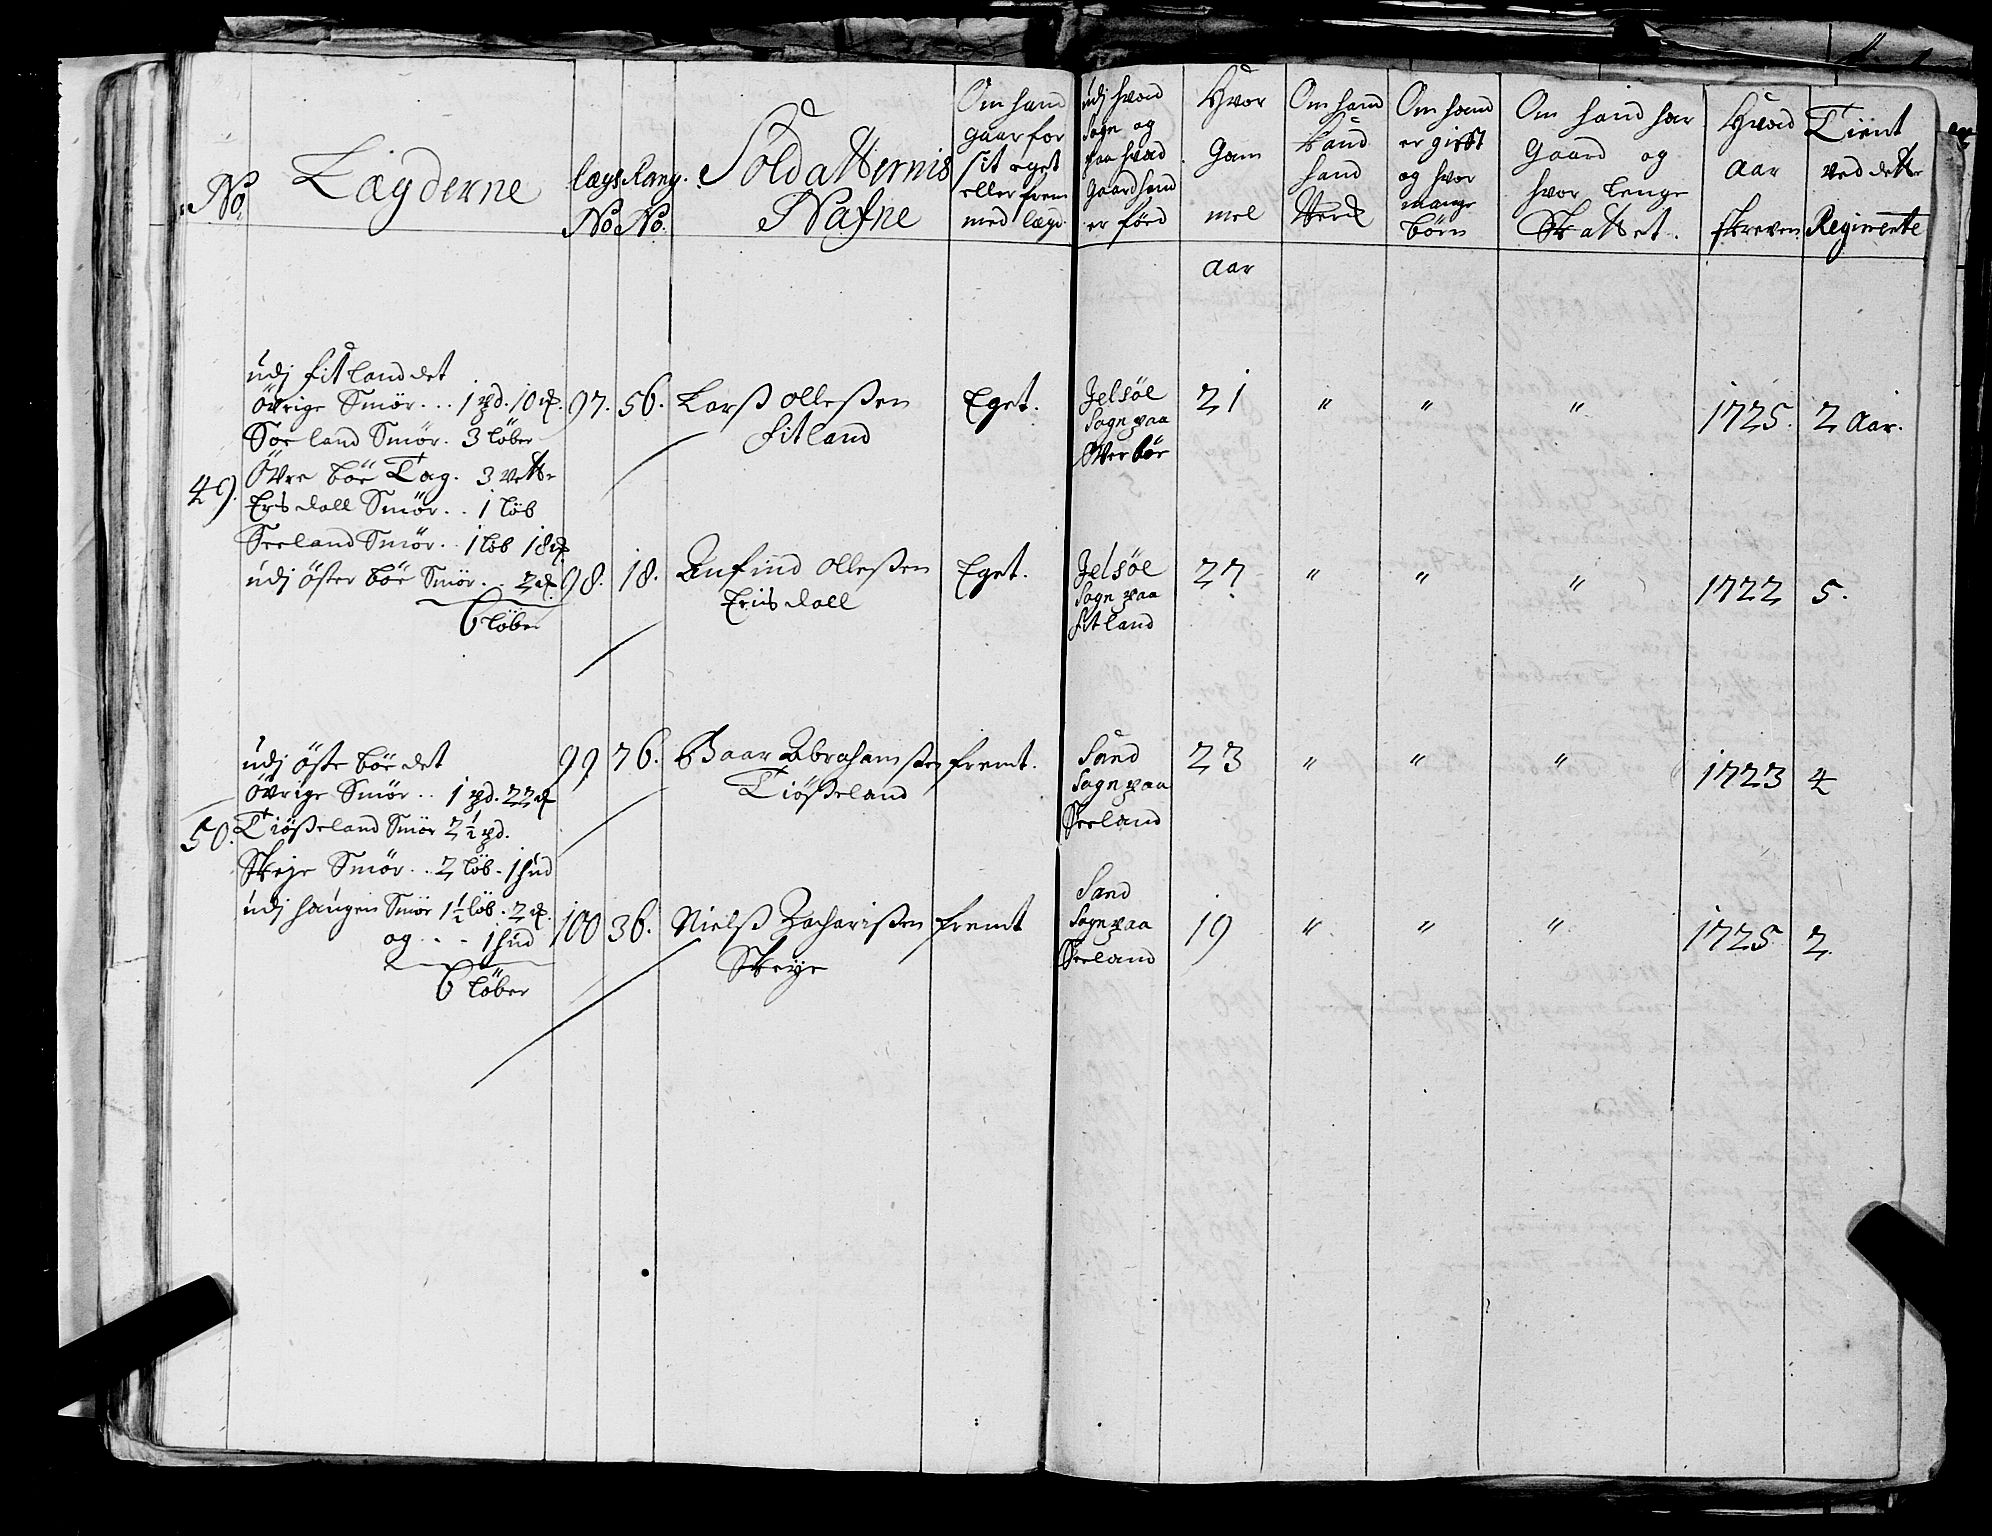 No
Lægderne
lægs Rang.
No No.
Soldatternis
Nafne
Om hand
gaar for
sit eget
eller frem
med lægd
udj hvad
Sogn og
paa hvad
gaard hand
er förd
Hvor
gam
mel
Aar
Om hand
kand
hand
Verk
Om hand
er gifft
og hvor
mange
börn
Om hand har
gaard og
hvor lenge
Skattet.
Hvad
Aar
skreven
Tient
ved dette
Regimente
49.
udj fitland det
övrige Smör... 1 pd. 10
Soeland Smör. 3 löber
Övre böe Tag. 3 vette
Erisdall Smör.. 1 löb
Seeland Smör.. 1 löb 18
udj öster böe Smör.. 2
6 löber
97. 56. Larss Ollessen
fitland
Eget.
Jelsöe
Sogn paa
Overböe
21 " " " 1725. 2 Aar.
98. 18. Anfind Ollessen
Erisdall
Eget.
Jelsöe
Sogn paa
fitland
27 " " " 1722 5.
50.
udj öste böe det
övrige Smör.. 1 pd. 22
Tiösseland Smör 2½ pd.
Skeje Smör.. 2 löb. 1 hud
udj haugen Smör 1½ löb. 2
og . . 1 hud
6 löber
99 76. Baar Abrahamssen
Tiösseland
fremt.
Sand
Sogn paa
Seeland
23 " " " 1723 4
100 36. Nielss Zacharissen
Skeye
fremt
Sand
Sogn paa
Seeland
19 " " " 1725 2.